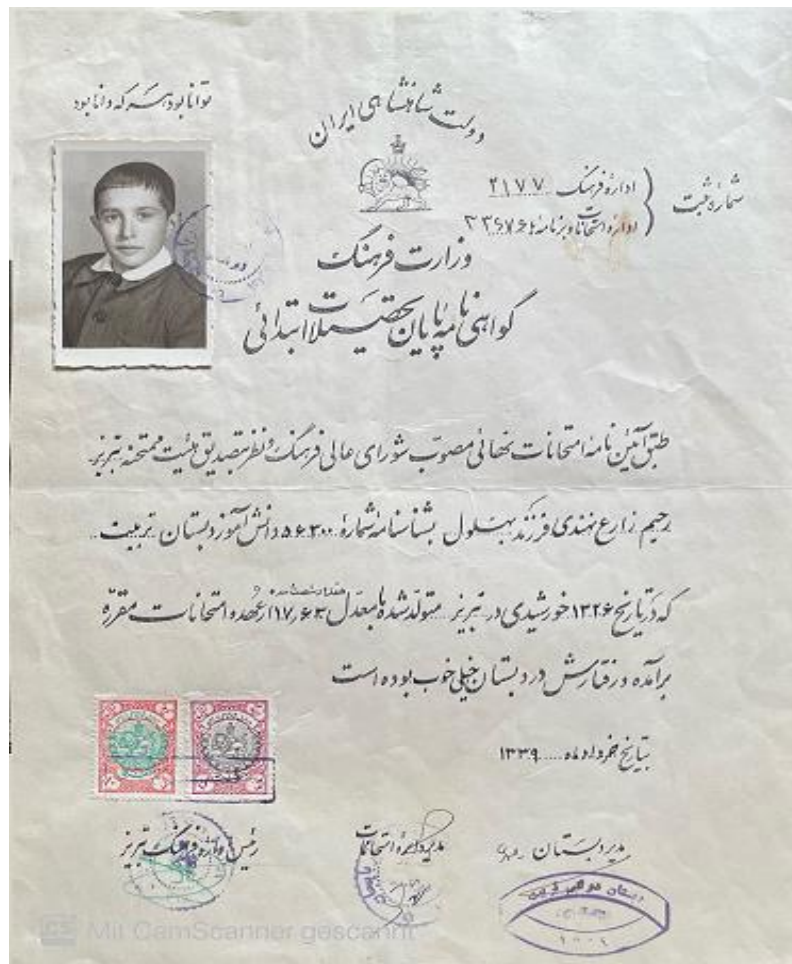 توانا بود هر که دانا بود
دولت شاهنشاهی ایران
شمارهٔ ثبت
ادارهٔ فرهنگ ۲۱۷۷
ادارهٔ امتحانات و برنامه‌ها ۳۳۶۷۶
وزارت فرهنگ
گواهی نامهٔ پایان تحصیلات ابتدائی
طبق آئین نامهٔ امتحانات نهائی مصوب شورای عالی فرهنگ و نظر بتصدیق هیئت ممتحنه تبریز
رحیم زارع نهندی فرزند بهلول بشناسنامه شمارهٔ ۵۶۳۰۰ دانش آموز دبستان تربیت
که در تاریخ ۱۳۲۶ خورشیدی در تبریز متولد شده با معدل ۱۷٫۶۳ از عهده امتحانات مقرره
برآمده و رفتارش در دبستان خیلی خوب بوده است
بتاریخ خرداد ماه ۱۳۳۹
مدیر دبستان
مدیر دایرهٔ امتحانات
رئیس ادارهٔ فرهنگ تبریز
دبستان دولتی تربیت
CS Mit CamScanner gescannt